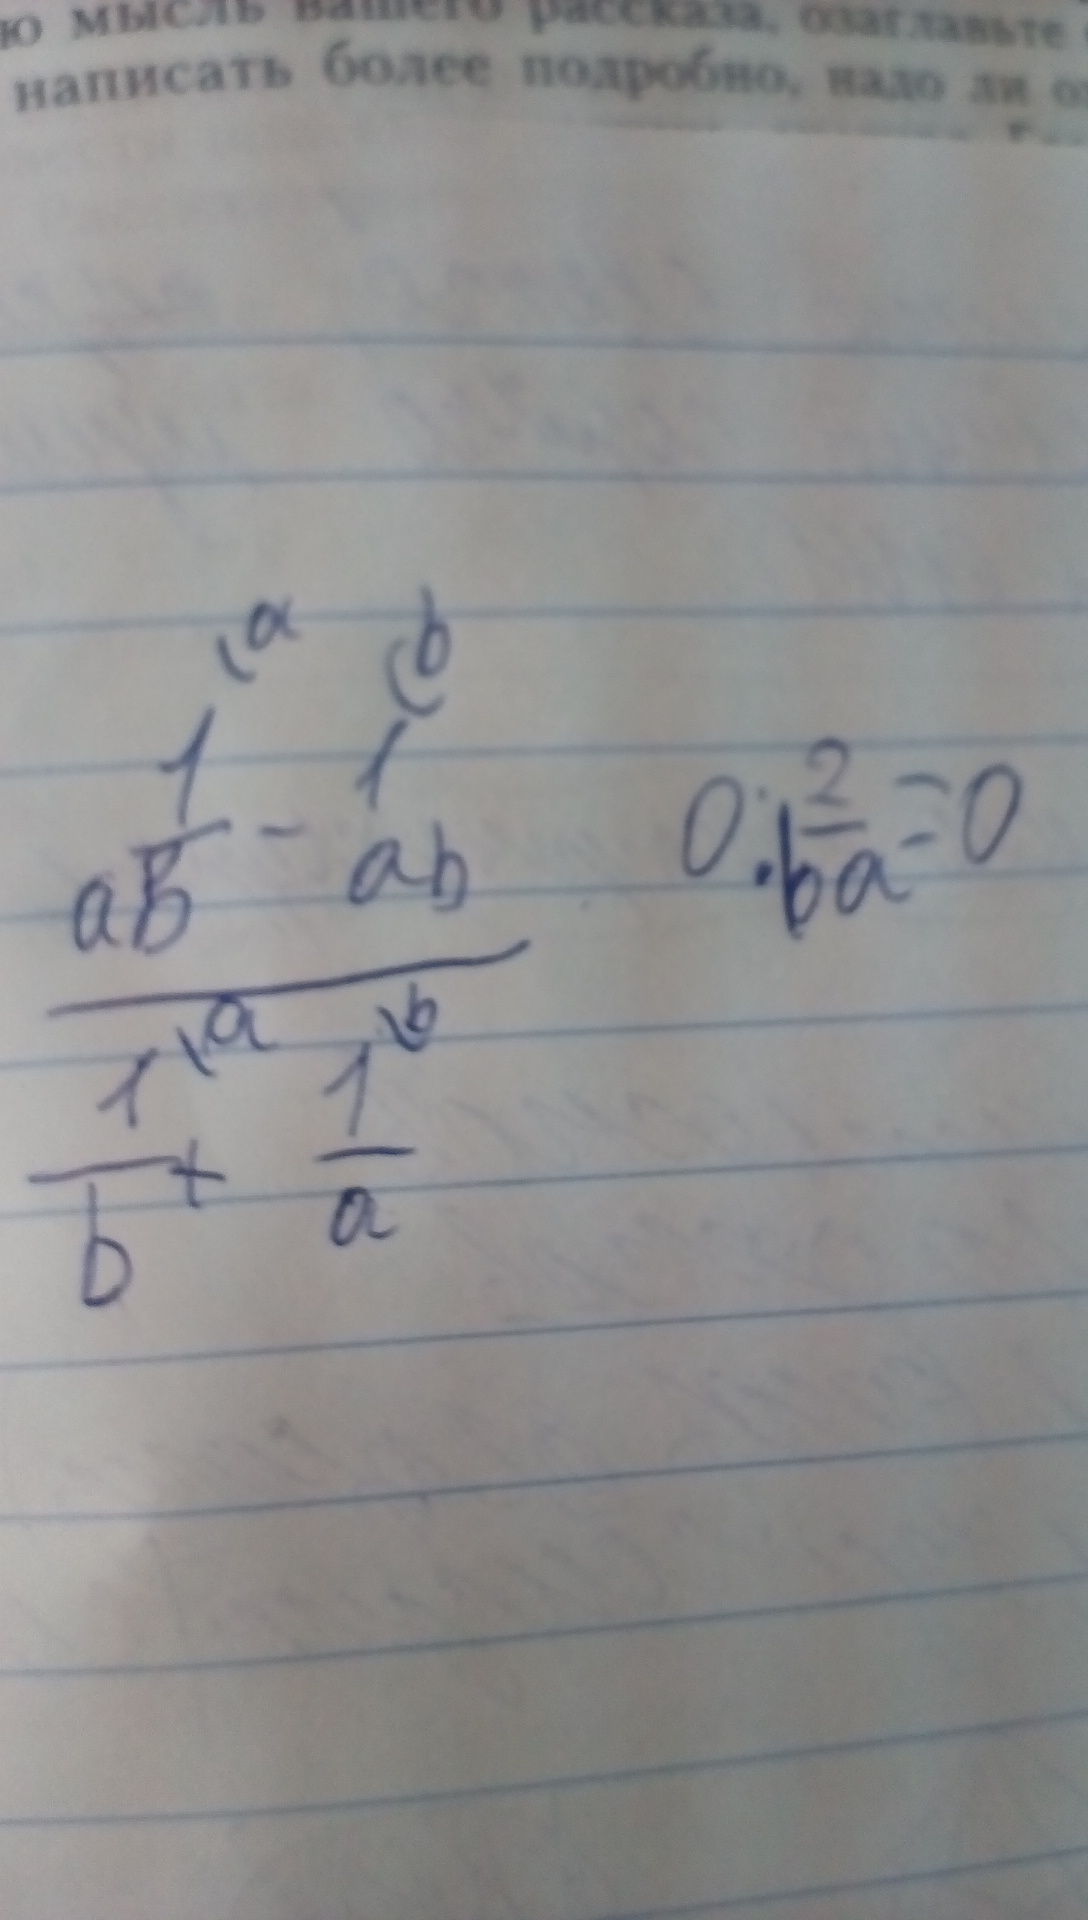 мысль вашего рассказа, озаглавьте
написать более подробно, надо ли
\a \b
1/ab - 1/ab 0:2/ba=0
1\a 1\b
1/b + 1/a